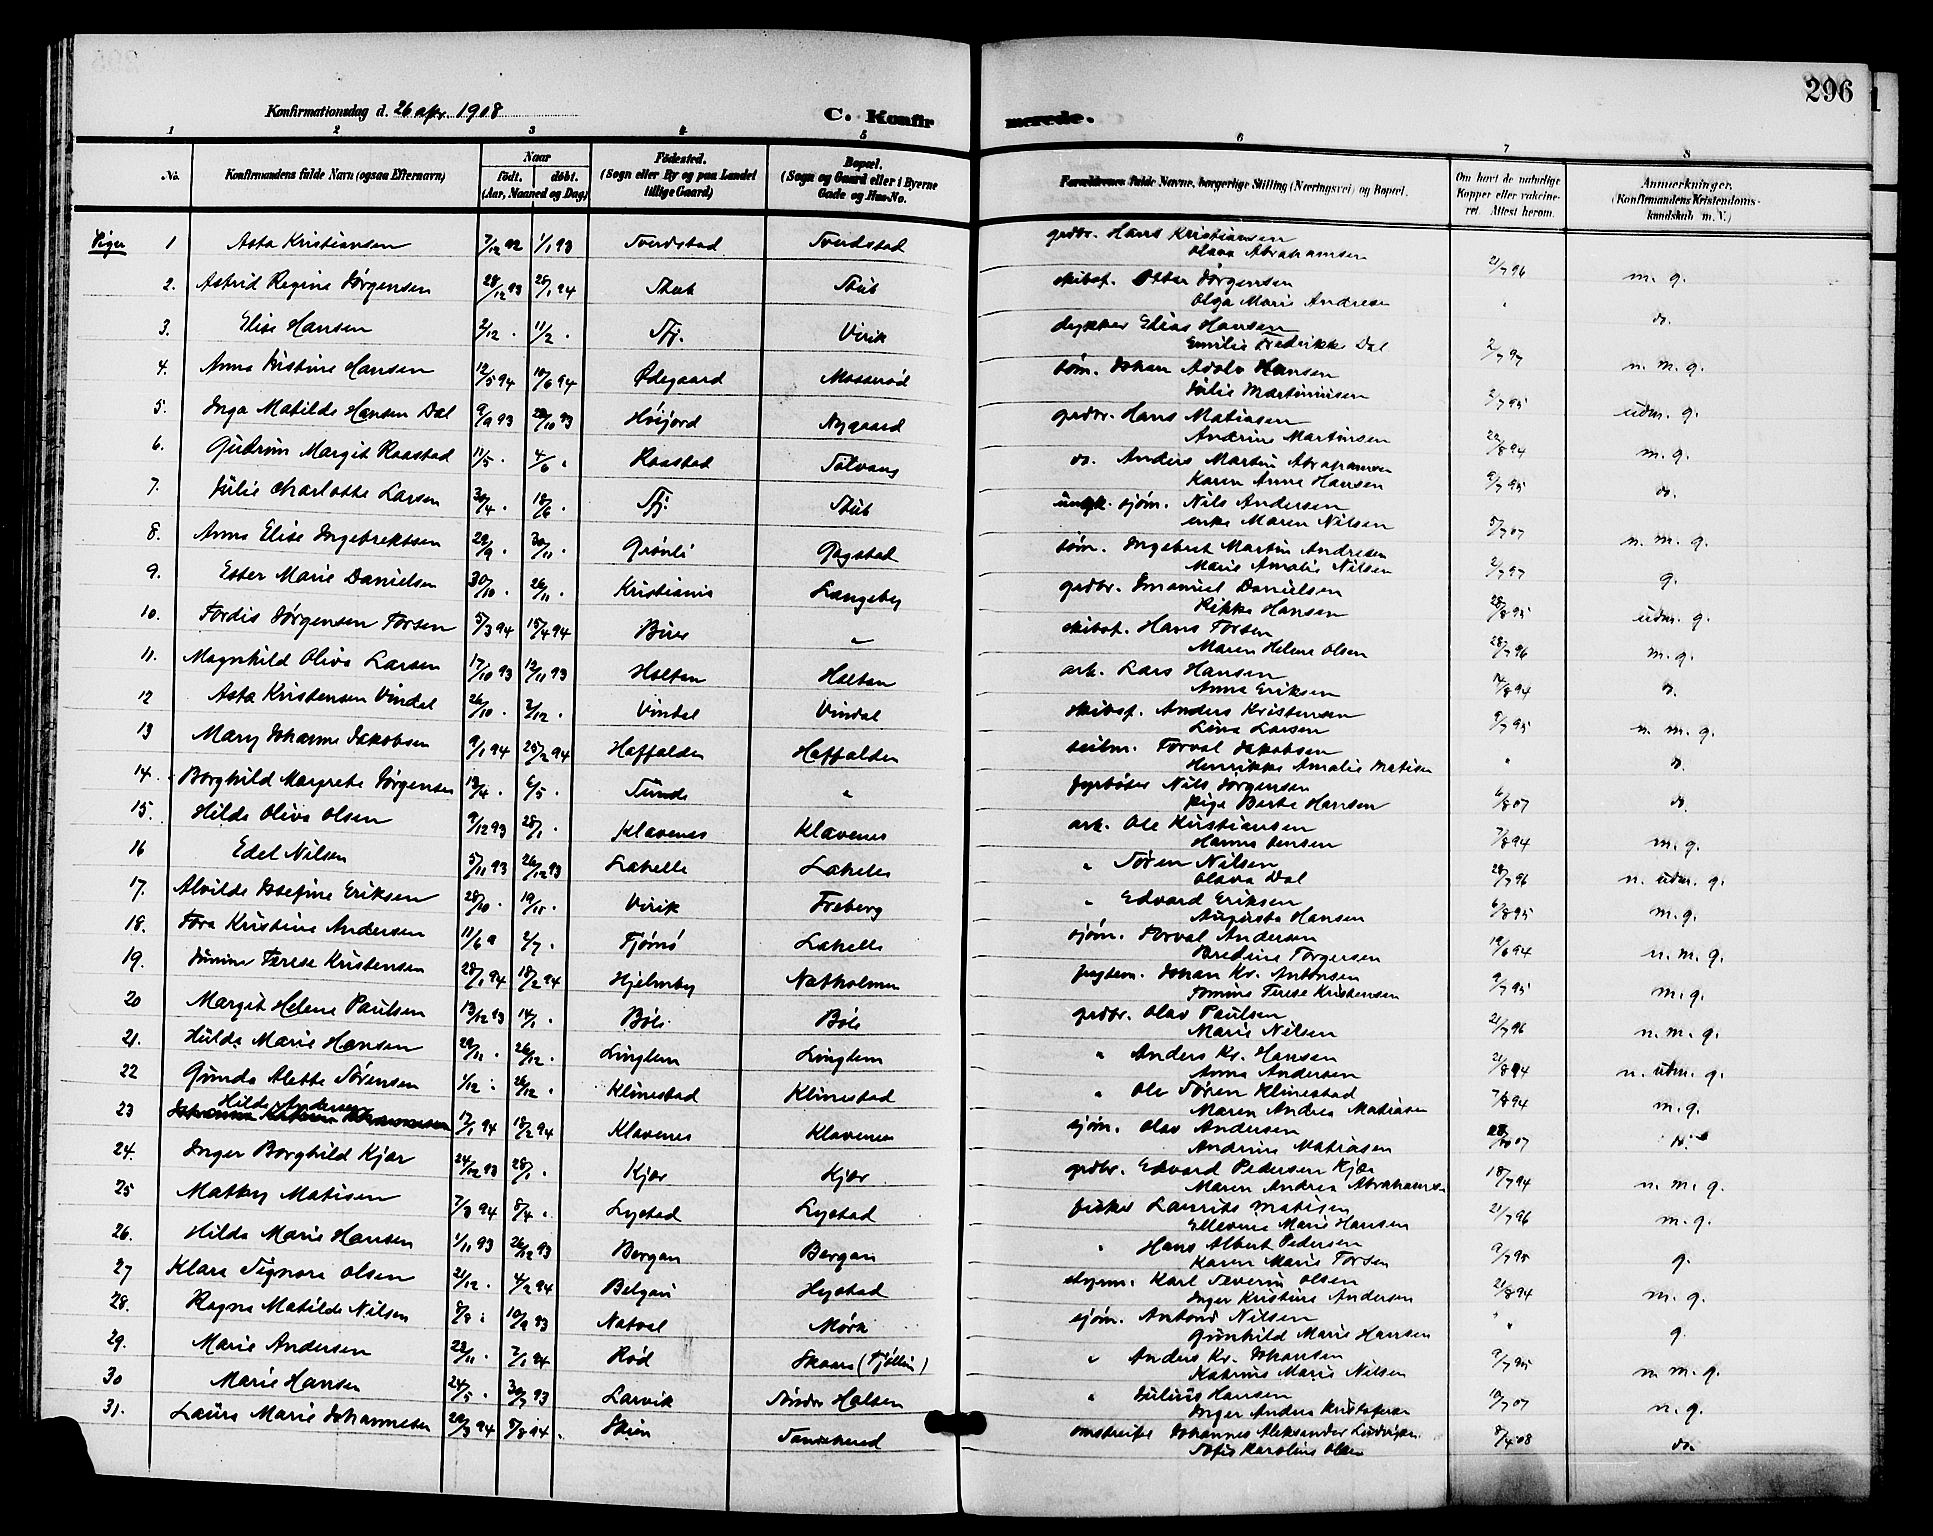 296
Konfirmationsdag d. 26 apr. 1908
C. Konfirmerede.
1 2 3 4 5 6 7 8
No. Konfirmandens fulde Navn (ogsaa Efternavn) Naar født. døbt. (Aar, Maaned og Dag) Fødested. (Sogn eller By og paa Landet tillige Gaard) Bopæl. (Sogn og Gaard eller i Byerne Gade og Hus-No. Forældrenes fulde Navne, borgerlige Stilling (Næringsvei) og Bopæl. Om havt de naturlige Kopper eller vakcineret. Attest herom. Anmerkninger. (Konfirmandens Kristendomskundskab m.V.)
Piger 1 Asta Kristiansen 7/12 92 1/1 93 Tverdstad Tverdstad grdbr. Hans Kristiansen
Olava Abrahamsen 21/7 96 m. g.
2. Astrid Regine Jørgensen 28/12 93 28/1 94 Stub Stub skibsf. Otter Jørgensen
Olga Marie Andresen " do.
3. Elise Hansen 2/12 . 11/2 . Tfj. Virik dykker Elias Hansen
Emilie Fredrikke Dal 2/7 97 n. m. g.
4. Anna Kristine Hansen 12/5 94 10/6 94 Ødegaard Mosserød tøm. Johan Adolv Hansen
Julie Martiniusen 2/7 95 udm. g.
5. Inga Matilde Hansen Dal 9/9 93 29/10 93 Høijord Nygaard grdbr. Hans Matiasen
Andrine Martinsen 22/8 94 m. g.
6. Gudrun Margit Raastad 11/5 . 4/6 . Raastad Solvang do. Anders Martin Abrahamsen
Karen Anna Hansen 9/7 95 do.
7. Julie Charlotte Larsen 30/4 . 18/6 . Tfj. Stub ungk. sjøm. Nils Andersen
enke Maren Nilsen 5/7 07 n. m. g.
8. Anna Elise Ingebrektsen 29/9 . 30/11 . Grønli Gogstad tøm. Ingebret Martin Andresen
Marie Amalie Nilsen 2/7 97 g.
9. Ester Marie Danielsen 30/10 . 26/11 . Kristiania Langeby grdbr. Emanuel Danielsen
Rikke Hansen 28/8 95 udm. g.
10. Tordis Jørgensen Torsen 5/3 94 15/4 94 Buer " skibsf. Hans Torsen
Maren Helene Olsen 28/7 96 m. g.
11. Magnhild Oliva Larsen 17/10 93 12/11 93 Holtan Holtan arb. Lars Hansen
Anna Eriksen 14/8 94 do.
12 Asta Kristensen Vindal 26/10 . 3/12 . Vindal Vindal skibsf. Anders Kristensen
Lina Larsen 9/7 95 n. m. g.
13 Mary Johanne Jakobsen 9/1 94 25/2 94 Haffalden Haffalden seilm. Torval Jakobsen
Henrikke Amalie Matisen " do.
14. Borghild Margrete Jørgensen 13/4 . 6/5 . Sunde " fyrbøter Nils Jørgensen
pige Berte Hansen 6/8 07 do.
15. Hilda Oliva Olsen 9/12 93 28/1 . Klavenes Klavenes arb. Ole Kristiansen
Hanna Jensen 7/8 94 m. g.
16 Edel Nilsen 5/11 93 26/12 93 Lahelle Lahelle " Søren Nilsen
Olava Dal 28/7 96 n. udm. g.
17. Alvilde Josefine Eriksen 28/10 . 19/11 . Virik Freberg " Edvard Eriksen
Augusta Hansen 6/8 95 m. g.
18. Tora Kristine Andersen 11/6 . 2/7 . Tjømø Lahelle sjøm. Torval Andersen
Bredine Torgersen 19/6 94 n. m. g.
19. Junine Terese Kristensen 28/1 94 18/2 94 Hjelmby Natholmen Johan Kr. Antonsen
Jomine Terese Kristensen 9/7 95 m. g.
20 Margit Helene Paulsen 13/12 93 14/1 . Bøle Bøle grdbr. Olav Paulsen
Marie Nilsen 21/7 96 n. m. g.
21. Hulda Marie Hansen 29/11 . 26/12 . Lingelem Lingelem " Anders Kr. Hansen
Anna Andersen 21/8 94 n. udm. g.
22 Gunda Alette Sørensen 1/12 . 26/12 . Klinestad Klinestad " Ole Søren Klinestad
Maren Andrea Matiasen 7/8 94 m. g.
23 Hilda Andersen 17/1 94 18/2 94 Klavenes Klavenes sjøm. Olav Andersen
Andrine Matiasen 07 do.
24. Inger Borghild Kjær 24/12 93 28/1 . Kjær Kjær grdbr. Edvard Pedersen Kjær
Maren Andrea Abrahamsen 18/7 94 n. m. g.
25 Mathy Matisen 7/3 94 8/4 . Lystad Lystad fisker Laurits Matisen
Ellevine Marie Hansen 21/7 96 m. g.
26. Hilda Marie Hansen 1/11 93 26/12 93 Bergan Bergan " Hans Albert Pedersen
Karen Marie Torsen 9/7 95 g.
27 Klara Signora Olsen 21/12 . 4/2 94 Belgau Hystad styrm. Karl Severin Olsen
Inger Kristine Andersen 21/8 94 m. g.
28. Ragna Matilde Nilsen 8/8 . 10/9 93 Natval Mørk sjøm. Antond Nilsen
Gunhild Marie Hansen " g.
29. Marie Andersen 23/11 . 7/1 94 Rød Skaara (Tjølling) " Anders Kr. Johansen
Katrine Marie Nilsen 9/7 95 n. m. g.
30 Marie Hansen 24/5 . 30/7 93 Larvik Søndre Holsen " Julius Hansen
Inger Andrea Kristofersen 10/7 07 n. g.
31. Laura Marie Johannesen 20/3 94 5/8 94 . Skien Sandeherred omstreifer Johannes Aleksander Ludvigsen
Sofie Karoline Olsen 8/4 08 do.